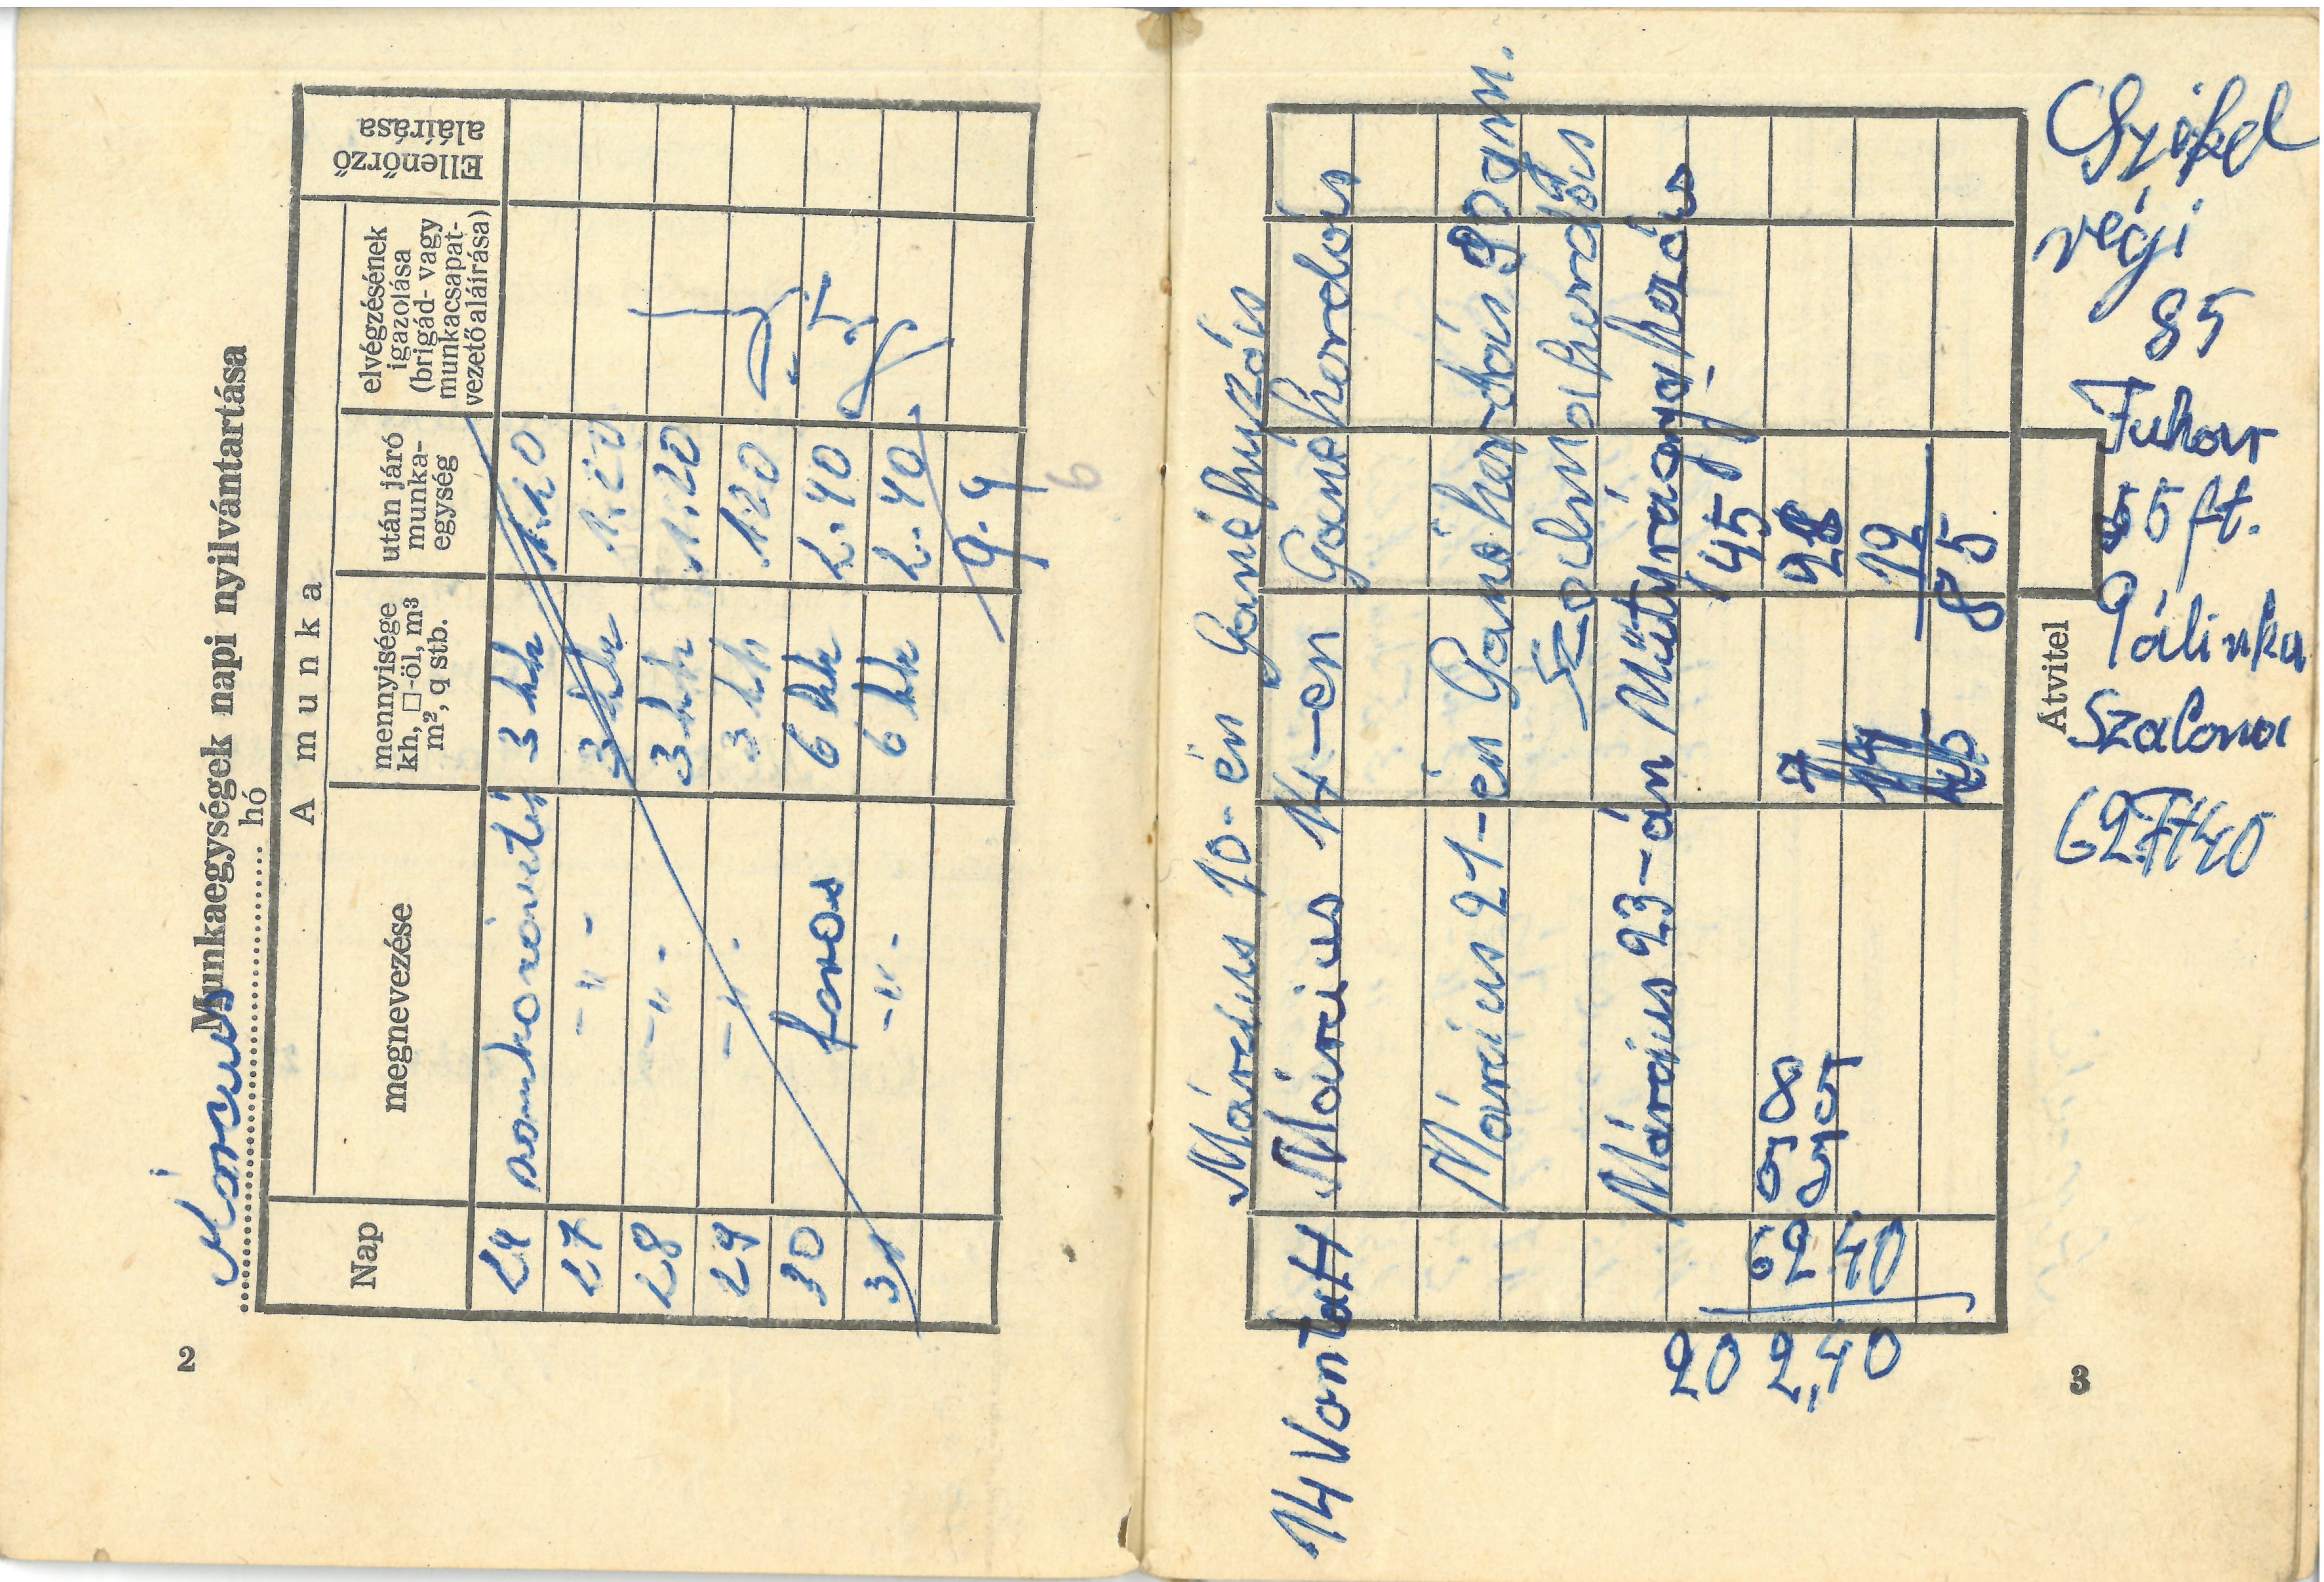 2
Munkaegységek napi nyilvántartása
Március hó
Nap
A munka
megnevezése
mennyisége
kh, □-öl, m³
m², q stb.
után járó
munka-
egység
elvégzésének
igazolása
(brigád- vagy
munkacsapat-
vezető aláírása)
Ellenőrző
aláírása
3 kh 1.20
27 -"- 3 kh 1.20
28 -"- 3 kh 1.20
29 -"- 3 kh 1.20
30 6 kh 2.40
31 -"- 6 kh 2.40
9.4
6
Március 10-én Ganéhuzás
14 Vontatt Március 14-en Ganéhordás
Március 21-én Ganéhordás 90 gm.
Szalmahordás
Március 23-án Mütyragya hozás
45
28
12
85
7
62
40
20 2,40
Átvitel
3
végi
85
Juhar
55 ft.
Pálinka
Szalona
62Ft40